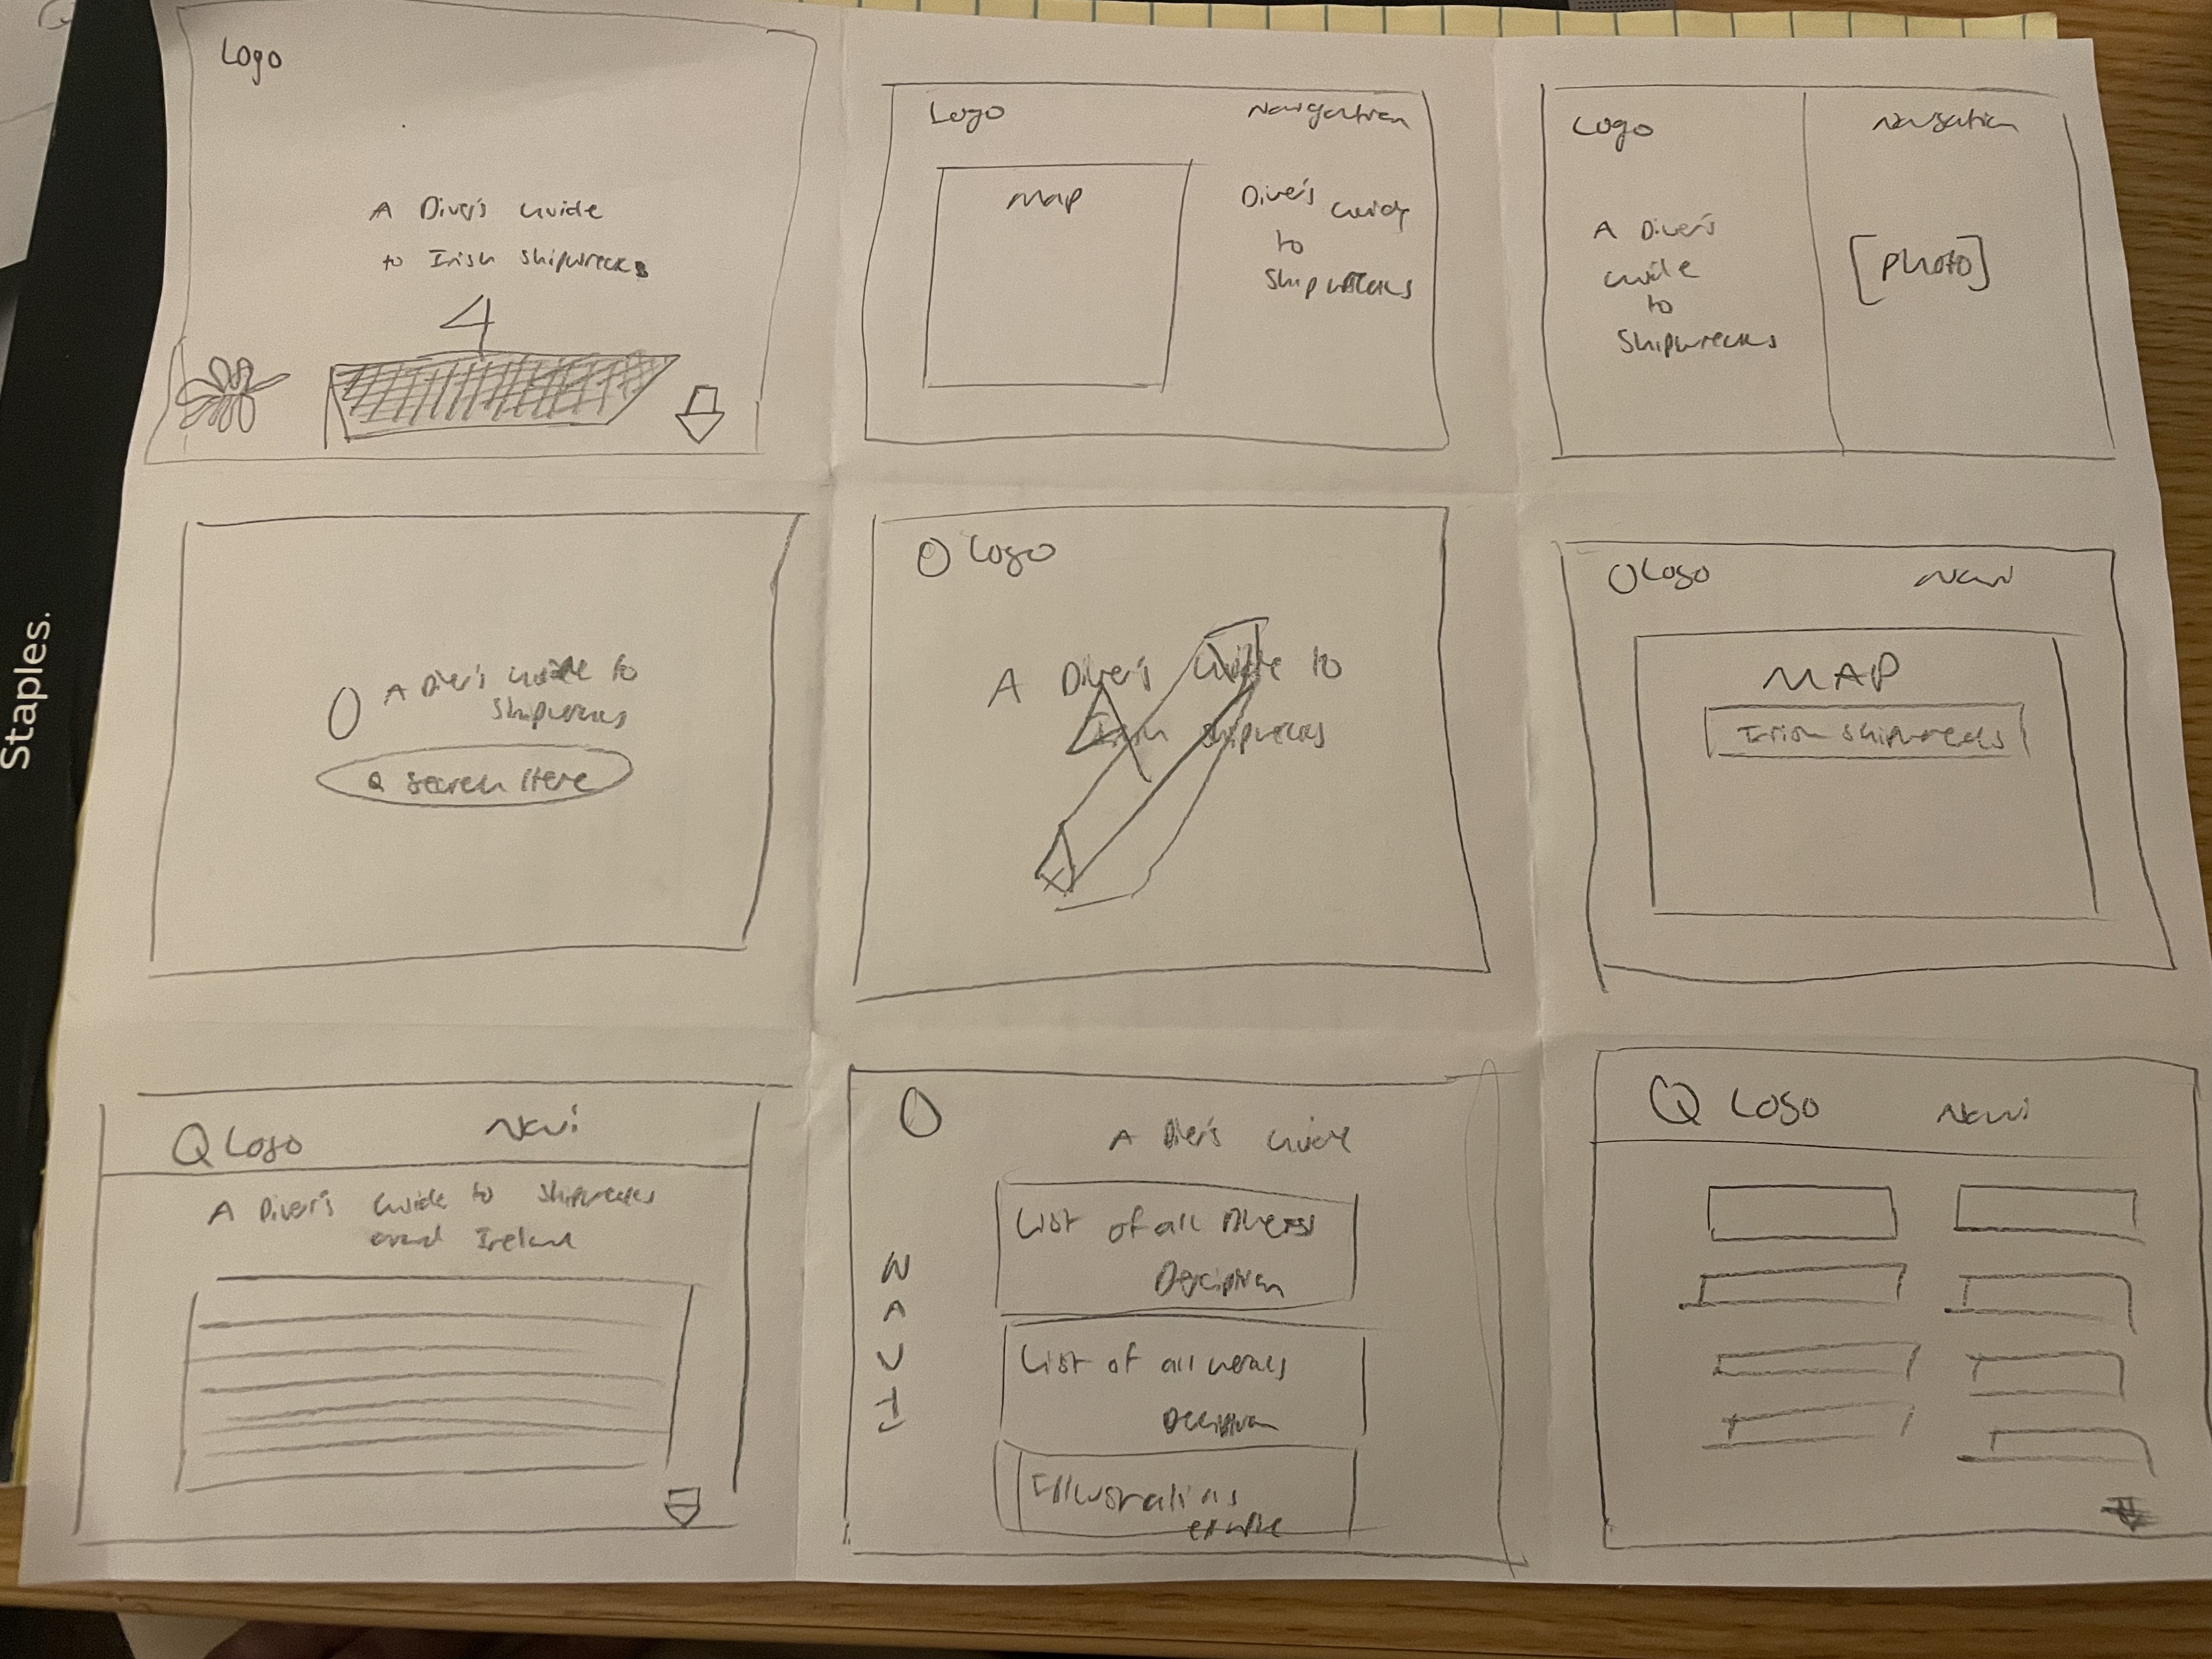 Logo
A Diver's Guide
to Irish Shipwrecks
Logo
Navigation
Map
Diver's Guide
to
Shipwrecks
Logo
Navigation
A Diver's
Guide
to
Shipwrecks
[Photo]
A Diver's Guide to
Shipwrecks
Search Here
Logo
A Diver's Guide to
Irish Shipwrecks
Logo
Navi
MAP
Irish Shipwrecks
Logo
Navi
A Diver's Guide to Shipwrecks
around Ireland
A Diver's Guide
List of all
List of all wrecks
Illustrations
Logo
Navi
Staples.